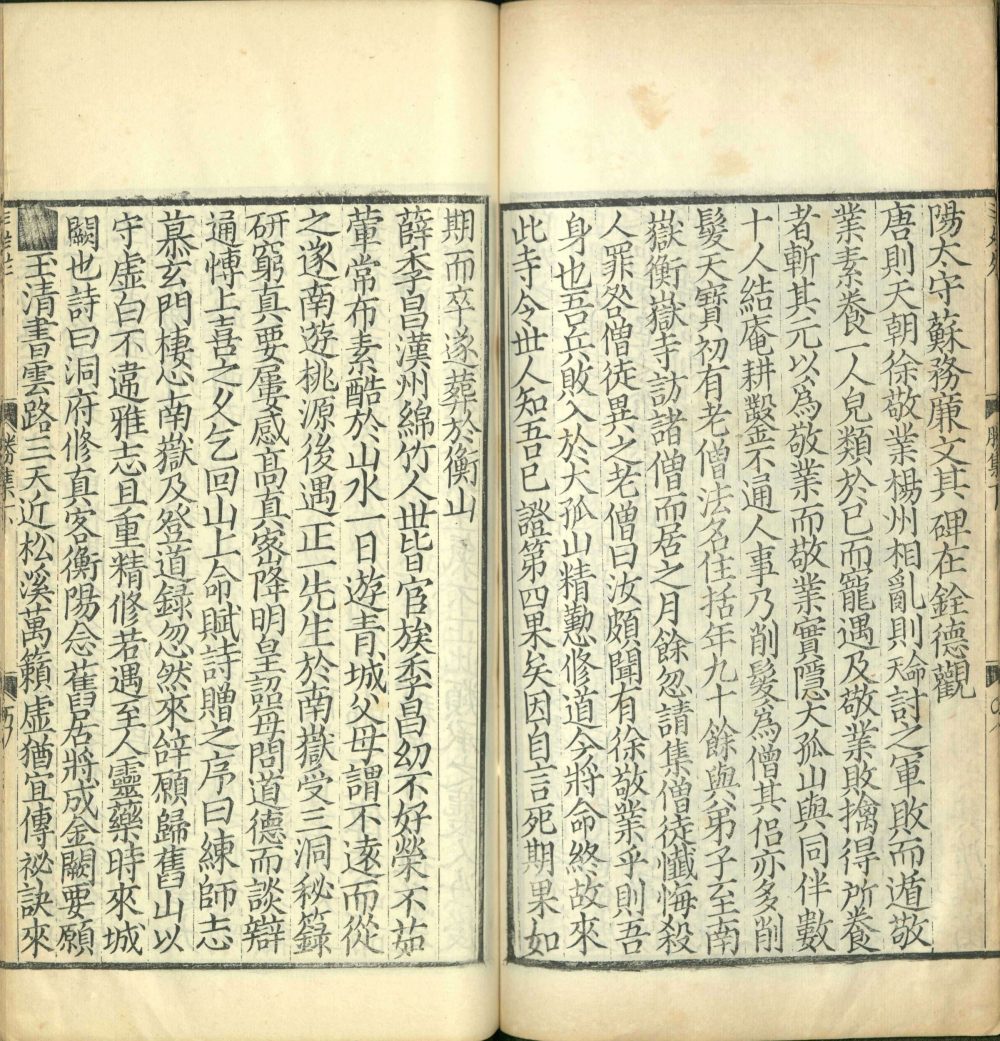 陽太守蘇務廉文其碑在銓德觀
唐則天朝徐敬業楊州相亂則天命討之軍敗而遁敬
業素養一人皃類於已而寵遇及敬業敗擒得所養
者斬其元以為敬業而敬業實隱大孤山與同伴數
十人結庵耕鑿不通人事乃削髮為僧其侶亦多削
髮天寶初有老僧法名住括年九十餘與弟子至南
嶽衡嶽寺訪諸僧而居之月餘忽請集僧徒懺悔殺
人罪咎僧徒異之老僧曰汝頗聞有徐敬業乎則吾
身也吾兵敗入於大孤山精懃修道今將命終故來
此寺今世人知吾已證第四果矣因自言死期果如
期而卒遂葬於衡山
薛季昌漢州綿竹人世皆官族季昌幼不好榮不茹
葷常布素酷於山水一日遊青城父母謂不遠而從
之遂南遊桃源後遇正一先生於南嶽受三洞秘籙
研窮真要屢感高真密降明皇詔母問道德而談辯
通博上喜之久乞回山上命賦詩贈之序曰練師志
慕玄門棲心南嶽及登道錄忽然來辝願歸舊山以
守虛白不違雅志且重精修若遇至人靈藥時來城
闕也詩曰洞府修真客衡陽念舊居將成金闕要願
玉清書雲路三天近松溪萬籟虛猶宜傳祕訣來
勝集下